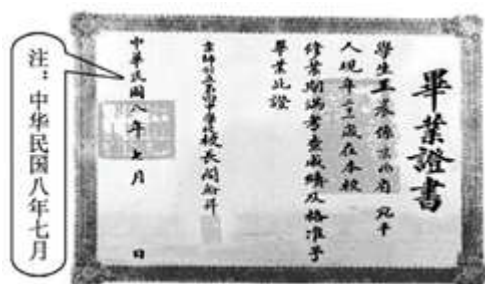 畢業證書
學生王 係京兆省宛平
人現年二十三歲在本校
修業期滿考查成績及格准予
畢業此證
京師 校長閻
中華民國八年七月 日
注：中华民国八年七月